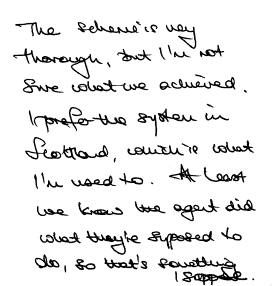 The scheme is very
thorough, but I'm not
sure what we achieved.
I prefer the system in
Scotland, which is what
I'm used to. At least
we know the agent did
what they're supposed to
do, so that's something
I suppose.